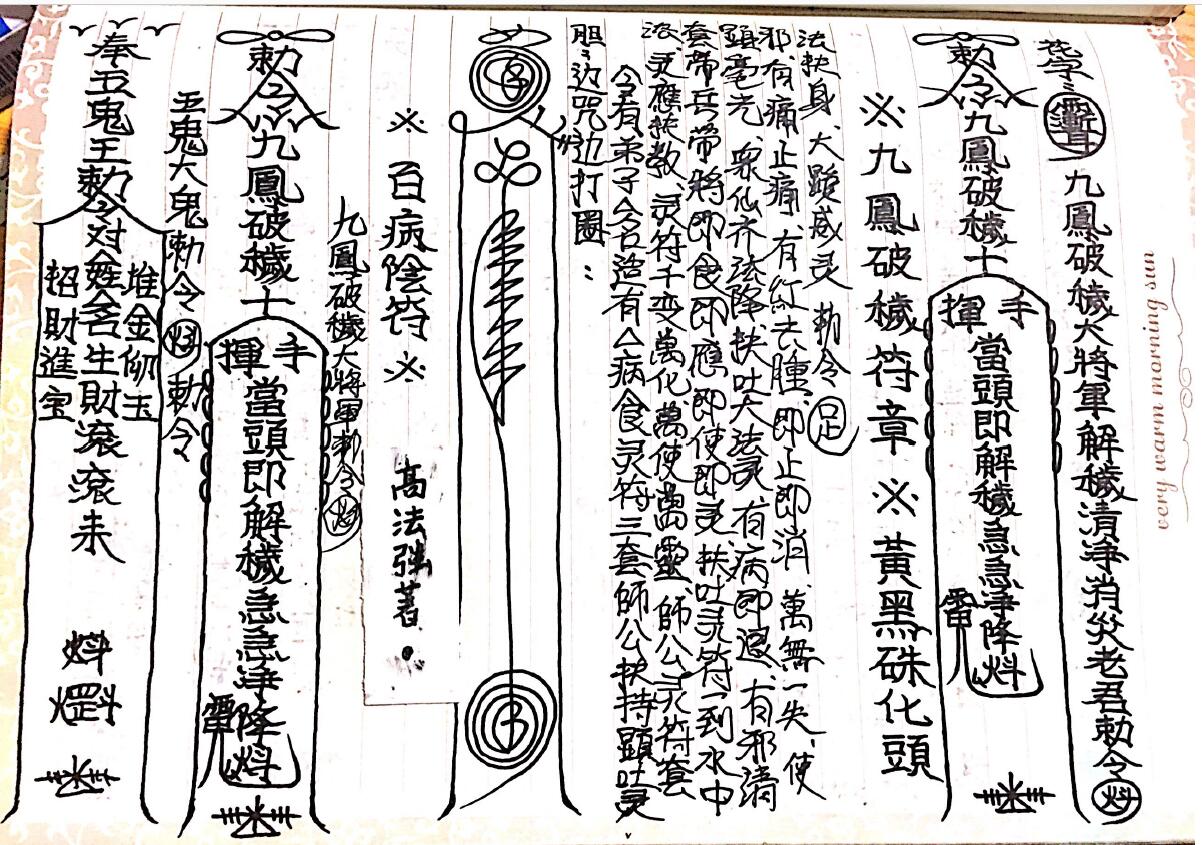 九鳳破穢大將軍解穢清淨消災老君勅令
勅令九鳳破穢士
手揮
當頭即解穢急急淨降炓
雷
※九鳳破穢符章※黃黑硃化頭
法扶身大顯威灵勅令足
邪有痛止痛有紅去腫即止即消萬無一失使
顕毫光衆仙齐法降扶吐大法灵有病即退有邪清
套带兵带將即食即應即使即灵扶吐灵符一到水中
法灵應扶教灵符千变萬化萬使萬靈師公灵符套
今有弟子名治有△病食灵符三套師公扶持顕吐灵
胆〻边咒边打圈：
※百病陰符※
高法強著.
九鳳破穢大將軍勅令炓
勅令九鳳破穢士
手揮
當頭即解穢急急淨降炓
雷
五鬼大鬼勅令炓勅令
奉五鬼王勅令对姓名生財滚滚来
堆金仰玉
招財進宝
炓
very warm morning sun